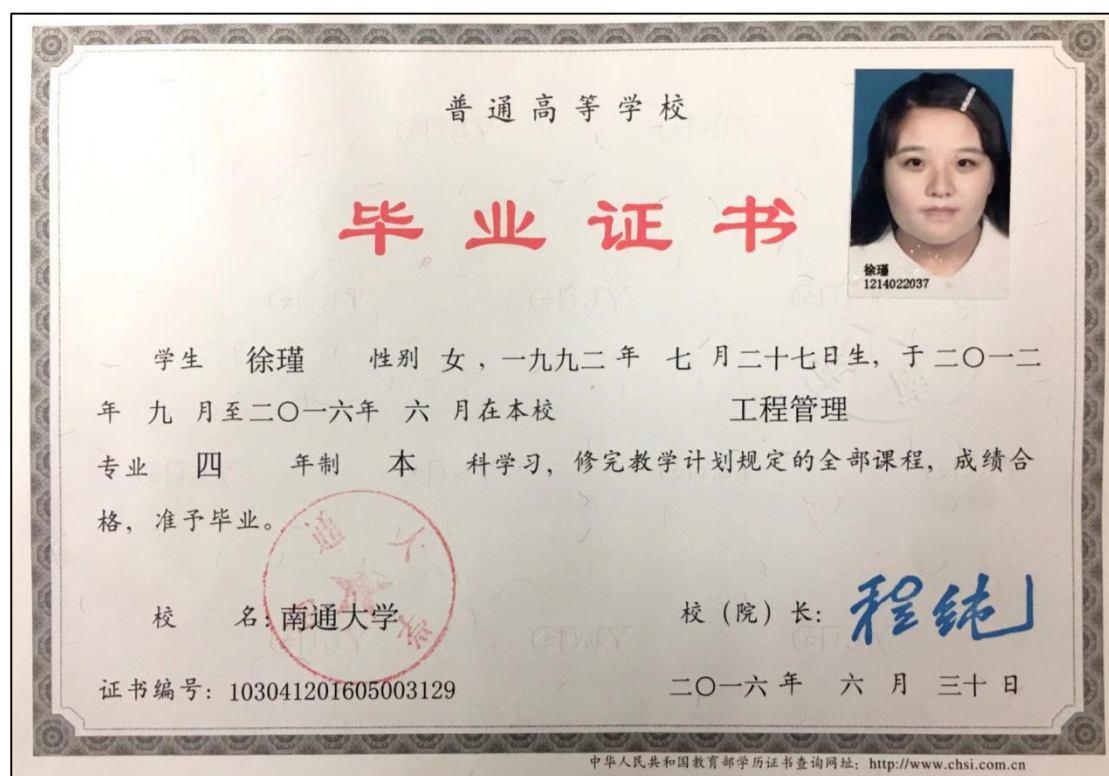 普通高等学校
毕业证书
徐瑾
1214022037
学生 徐瑾 性别 女，一九九二 年 七 月二十七日生，于 二〇一二
年 九 月至二〇一六年 六 月在本校 工程管理
专业 四 年制 本 科学习，修完教学计划规定的全部课程，成绩合
格，准予毕业。
校 名：南通大学
校（院）长：程纯
证书编号：103041201605003129
二〇一六 年 六 月 三十 日
中华人民共和国教育部学历证书查询网址：http://www.chsi.com.cn